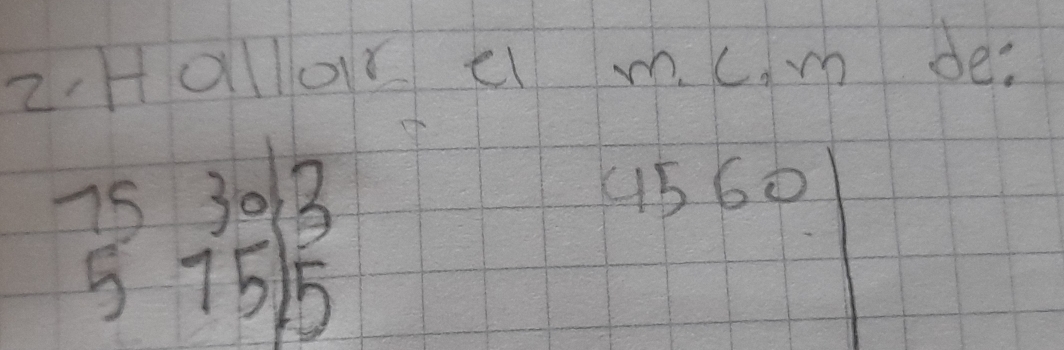 2. Hallar el m.c.m de:
15 30 3 45 60
5 15 5